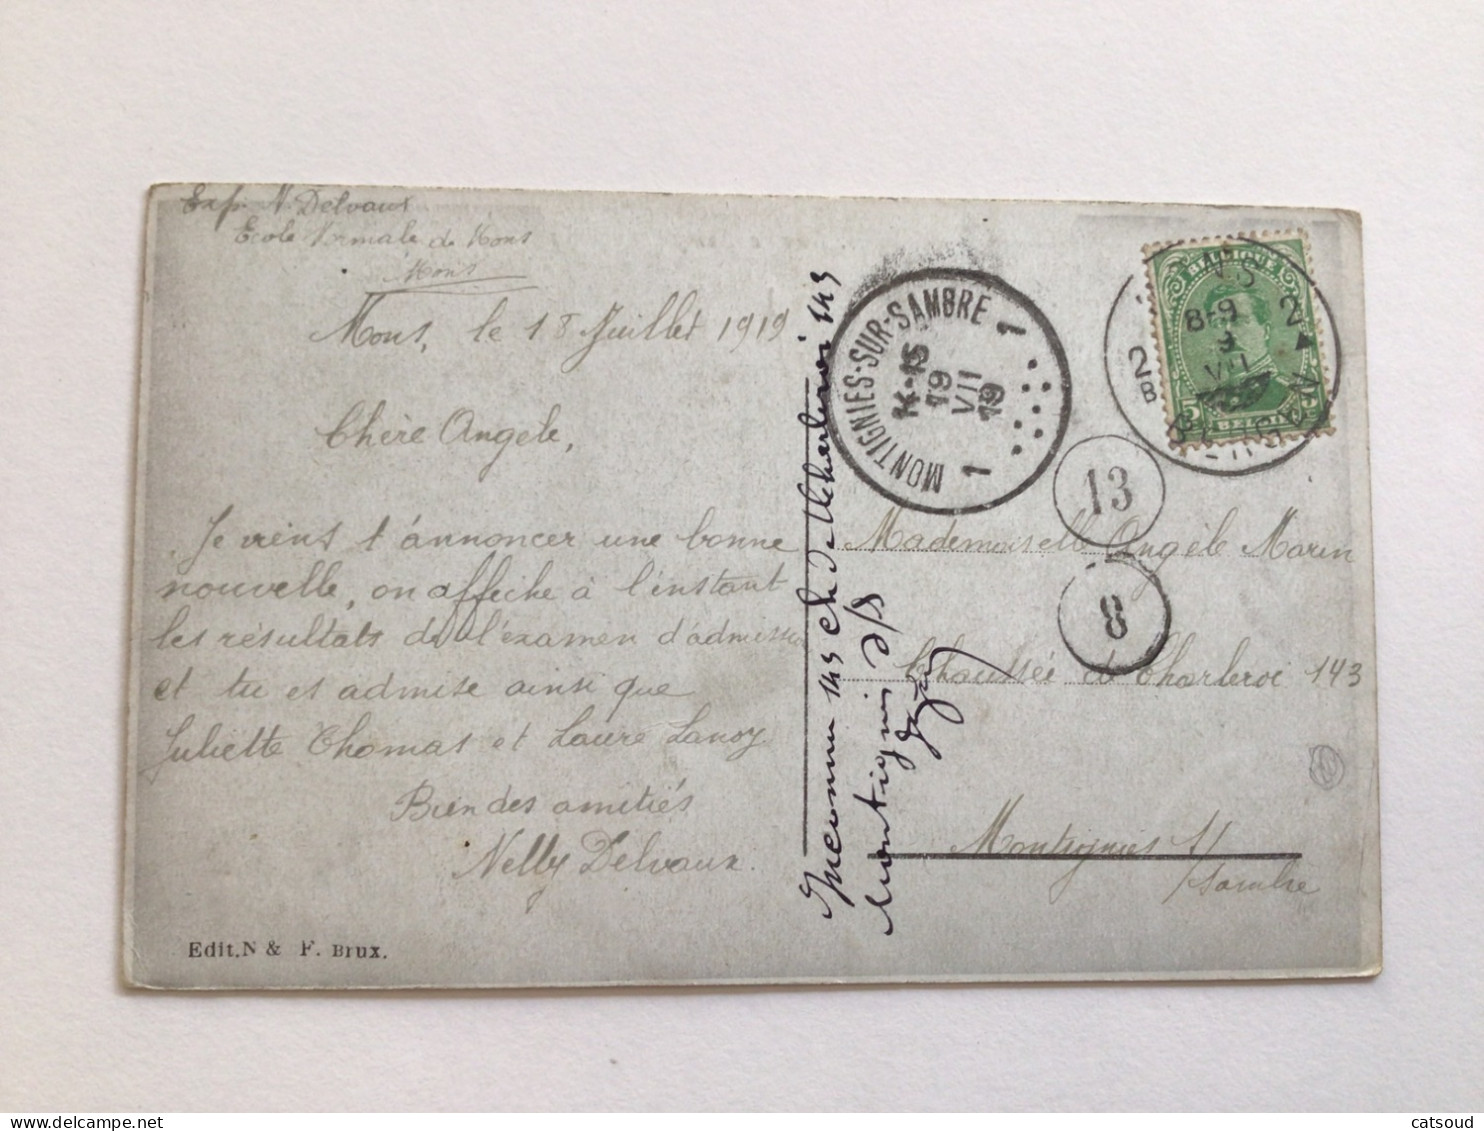 Exp. N. Delvaux
Ecole Normale de Mons
Mons
Mons, le 18 Juillet 1919
Chère Angèle,
Je viens t'annoncer une bonne
nouvelle, on affiche à l'instant
les résultats de l'examen d'admission
et tu es admise ainsi que
Juliette Thomas et Laure Lanoy
Bien des amitiés
Nelly Delvaux.
Edit. N & F. Brux.
Inconnu 143 Ch de Charleroi 143
Montignies s/s
MONTIGNIES-SUR-SAMBRE
1 1
14-15
19
VII
19
BELGIQUE
5
8-9
VII
2
2B
13
8
Mademoiselle Angèle Marin
Chaussée de Charleroi 143
Montignies s/
Sambre
catsoud